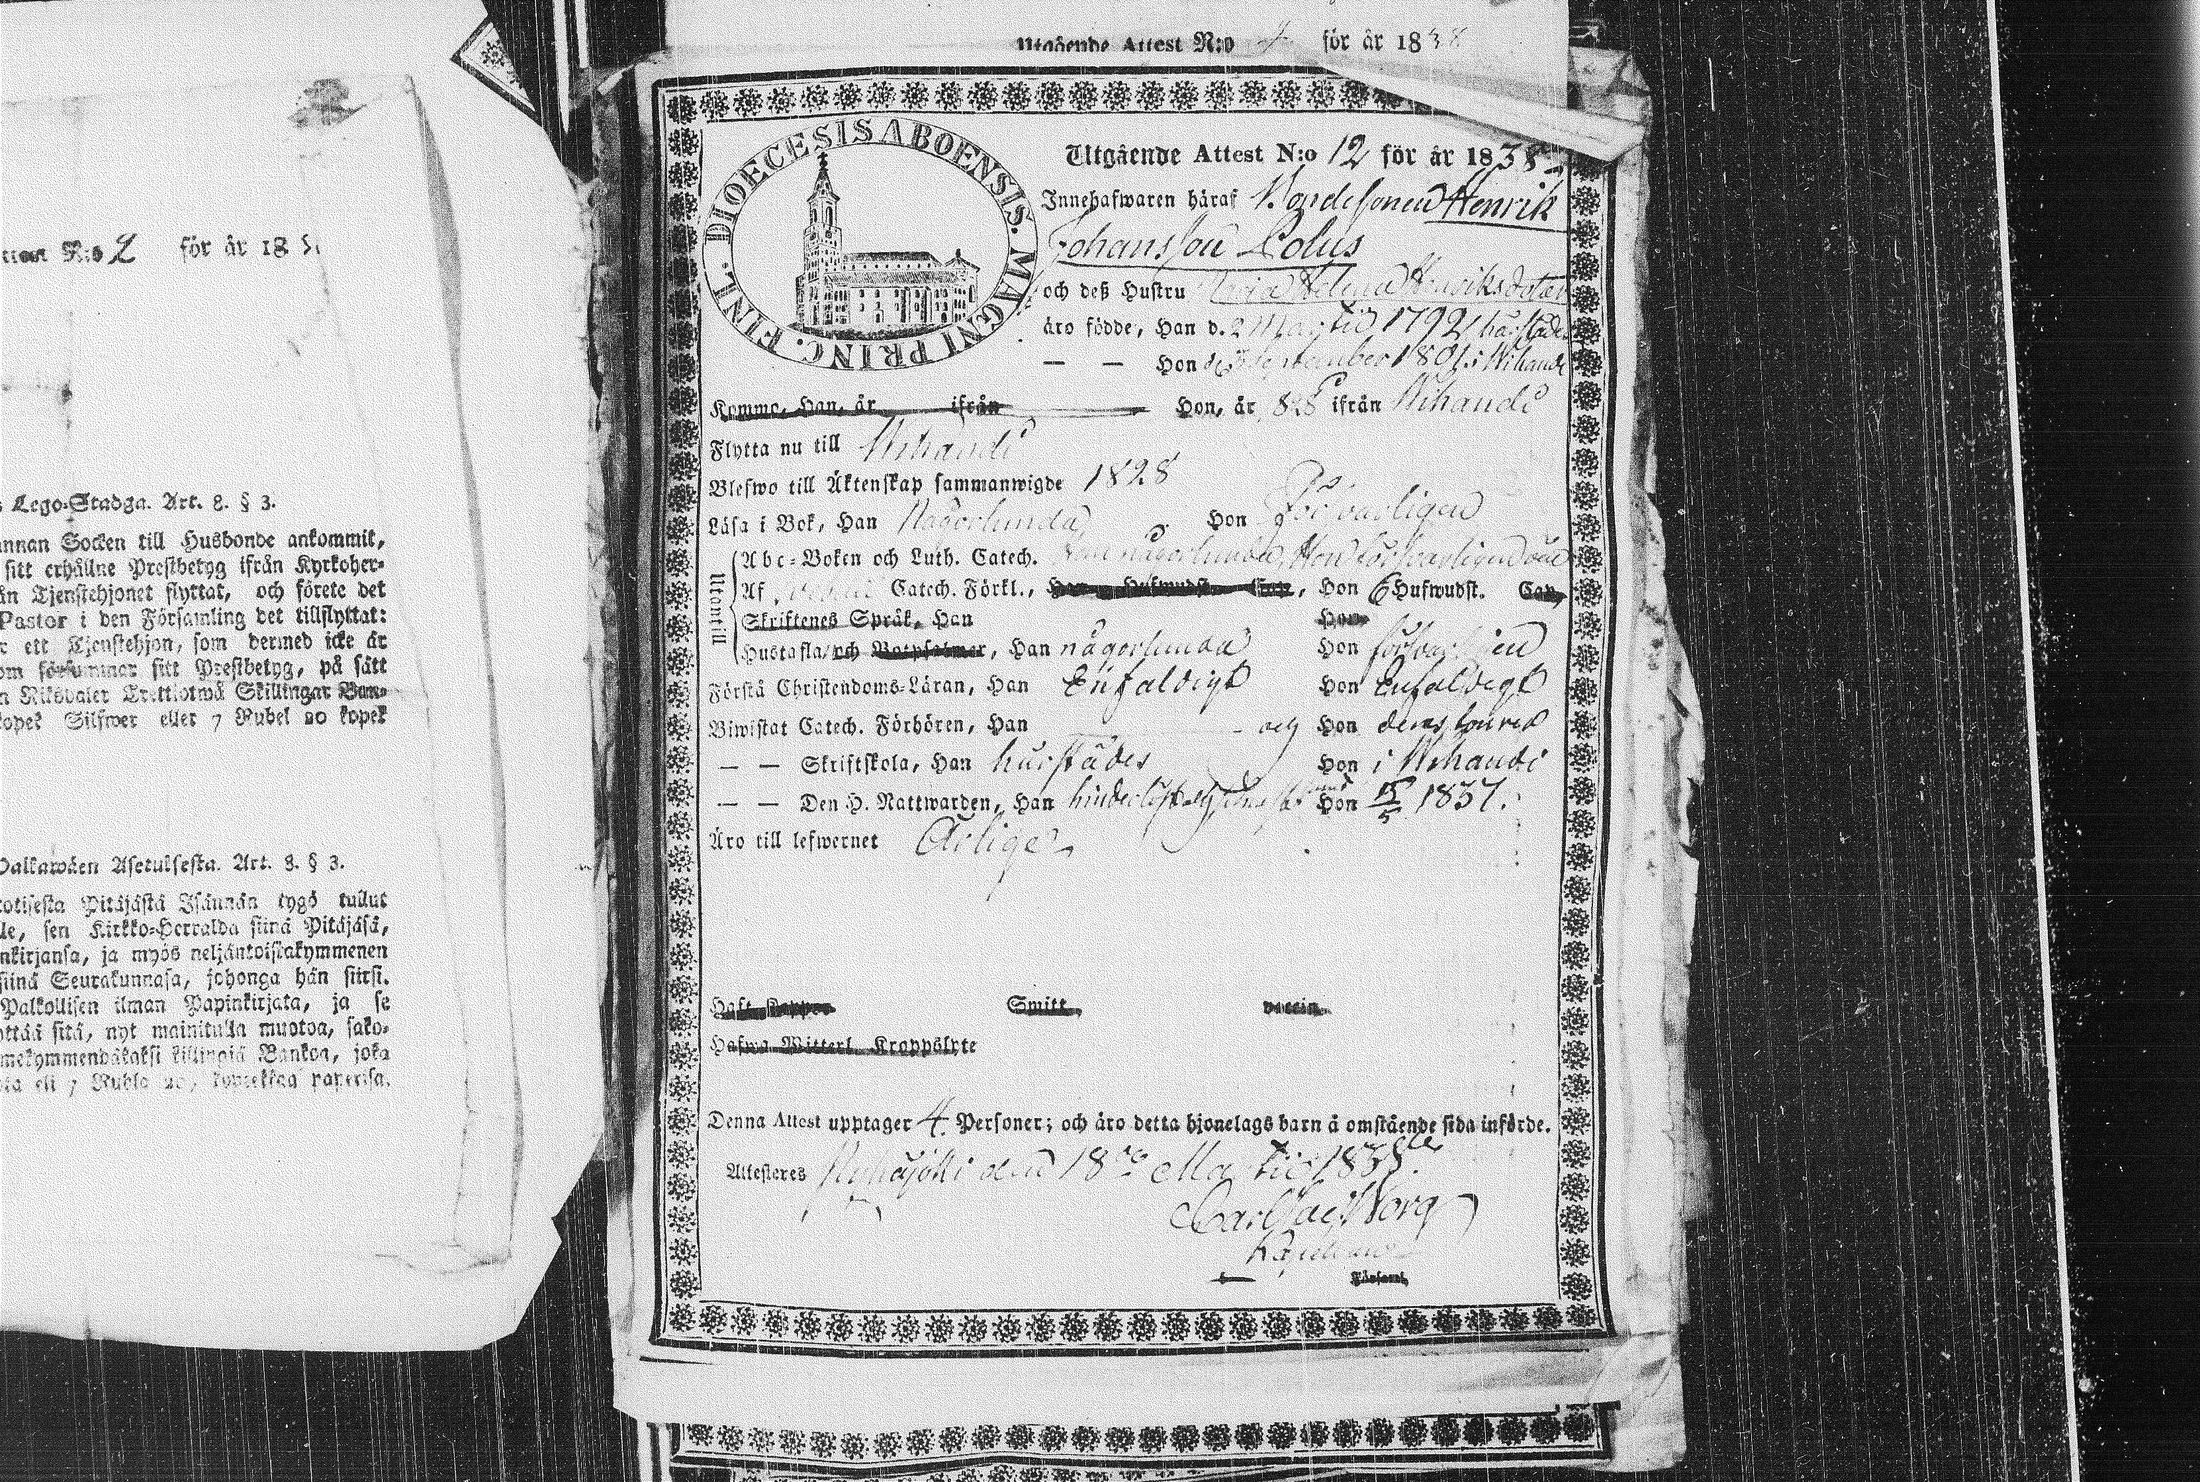 Utgående Attest N:o för år 18
Attest N:o 2 för år 18
Lego-Stadga. Art. 8. § 3.
annan Socken till Husbonde ankommit,
sitt erhållne Prestbetyg ifrån Kyrkoher-
Tjenstehjonet flyttat, och förete det
Pastor i den Församling det tillflyttat:
ett Tjenstehjon, som dermed icke är
om försummar sitt Prestbetyg, på sätt
Riksdaler Trettiotwå Skillingar Ban-
kopek Silfwer eller 7 Rubel 20 kopek
Palkawäen Asetuksesta. Art. 8. § 3.
Pitäjästä Isännän tygö tullut
sen Kirkko-Herralda siinä Pitäjäsä,
nkirjansa, ja myös neljäntoistakymmenen
siinä Seurakunnasa, johonga hän siirsi.
Palkollisen ilman Papinkirjata, ja se
ottaa sitä, nyt mainitulla muotoa, sako-
killingiä Bankoa, joka
eli 7 Rubla 20 kopeekkaa paperisa.
DIOECESIS ABOENSIS. MAGNI PRINC. FINL.
Utgående Attest N:o 12 för år 1838
Innehafwaren häraf Bondesonen Henrik
Johansson Lolus
och deß Hustru Maria Helena Henriksdotter
äro födde, Han d. 2 Martii 1792 härstädes
— — Hon d. September 1801 i
Komne, Han, år ifrån Hon, år 828 ifrån
Flytta nu till
Blefwo till Äktenskap sammanwigde 1828
Läsa i Bok, Han Någorlunda Hon Försvarligen
Utantill
Abc-Boken och Luth. Catech. Han någorlunda, Hon försvarligen
Af Catech. Förkl., Han Hufwudst. Cap., Hon 6 Hufwudst. Cap.
Skriftenes Språk, Han Hon
Hustafla och Botpsalmer, Han någorlunda Hon försvarligen
Förstå Christendoms-Läran, Han Enfaldigt Hon Enfaldigt
Biwistat Catech. Förhören, Han och Hon
— — Skriftskola, Han härstädes Hon i
— — Den H. Nattwarden, Han Hon 15/5 1837.
Äro till lefwernet Ärlige
Haft Koppor Smitt. vaccin.
Hafwa Witterl. Kroppslyte
Denna Attest upptager 4 Personer; och äro detta hjonelags barn å omstående sida införde.
Attesteras den 18 Martii 1838.
Carl
Kapellan
Församl.